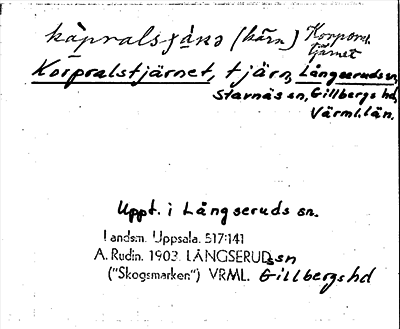 kàpralsʃæ̀nə (kärn) Korporal
tjärnet
Korpralstjärnet, tjärn, Långseruds sn,
Stavnäs sn, Gillbergs hd,
Värml. län.
Uppt. i Långseruds sn.
Landsm. Uppsala. 517:141
A. Rudin. 1903. LÅNGSERUDs sn
("Skogsmarken") VRML. Gillbergs hd